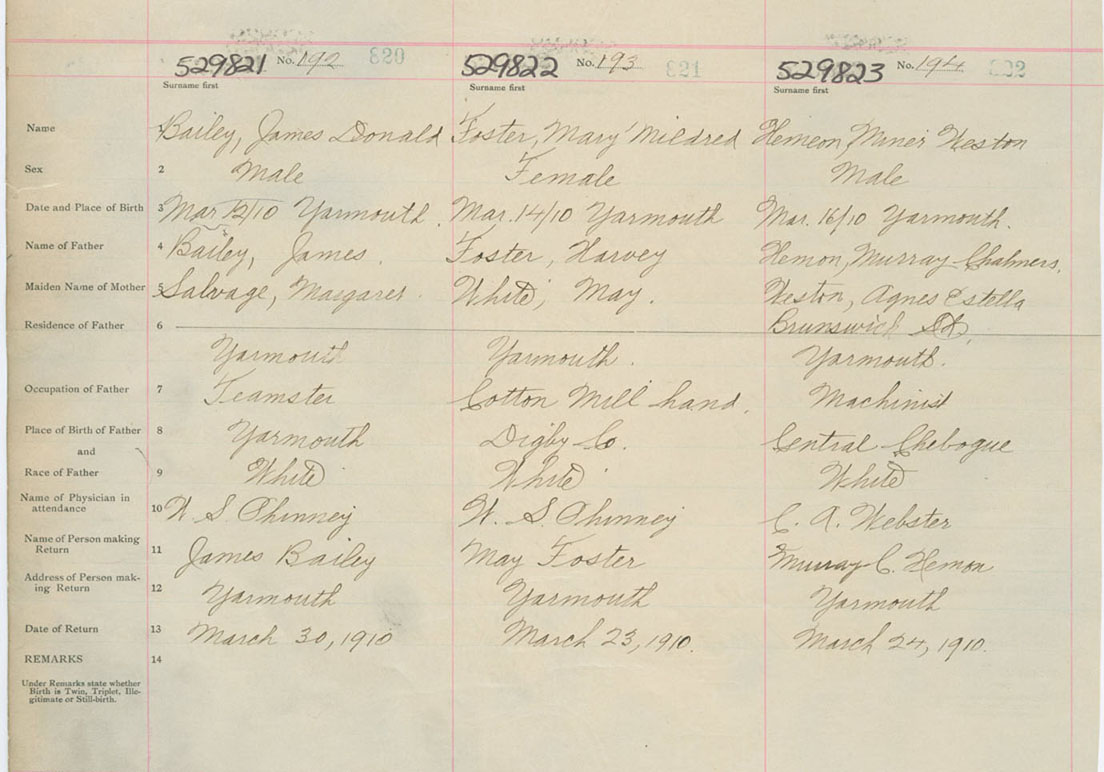 529821 No. 192 820 529822 No. 193 821 529823 No. 194 822
Surname first Surname first Surname first
Name Bailey, James Donald Foster, Mary Mildred Hemeon, Miner Weston
Sex 2 Male Female Male
Date and Place of Birth 3 Mar 12/10 Yarmouth. Mar. 14/10 Yarmouth Mar. 16/10 Yarmouth.
Name of Father 4 Bailey, James. Foster, Harvey Hemon, Murray Chalmers.
Maiden Name of Mother 5 Salvage, Margaret. White, May. Weston, Agnes Estella
Residence of Father 6 Brunswick St,
Yarmouth Yarmouth. Yarmouth.
Occupation of Father 7 Teamster Cotton Mill hand. Machinist
Place of Birth of Father 8 Yarmouth Digby Co. Central Chebogue
and
Race of Father 9 White White White
Name of Physician in
attendance 10 W. S. Phinney W. S. Phinney C. A. Webster
Name of Person making
Return 11 James Bailey May Foster Murray C. Hemon
Address of Person mak-
ing Return 12 Yarmouth Yarmouth Yarmouth
Date of Return 13 March 30, 1910 March 23, 1910. March 24, 1910.
REMARKS 14
Under Remarks state whether
Birth is Twin, Triplet, Ille-
gitimate or Still-birth.